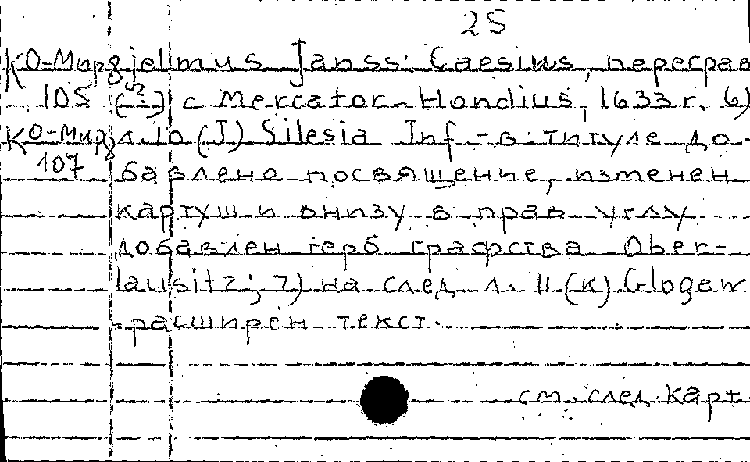 25
КО-Мир gjelmus Janss: Caesius, перегра
105 с Mercator-Hondius, 1633 г. 6)
КО-Мир л. 10 (J) Silesia Inf.- в титуле до-
107 бавлено посвящение, изменен
картуш и внизу в прав углу
добавлен герб графства Ober-
lausitz; 7) на след л. 11 (К) Glogaw
- расширен текст.
см. след. карт